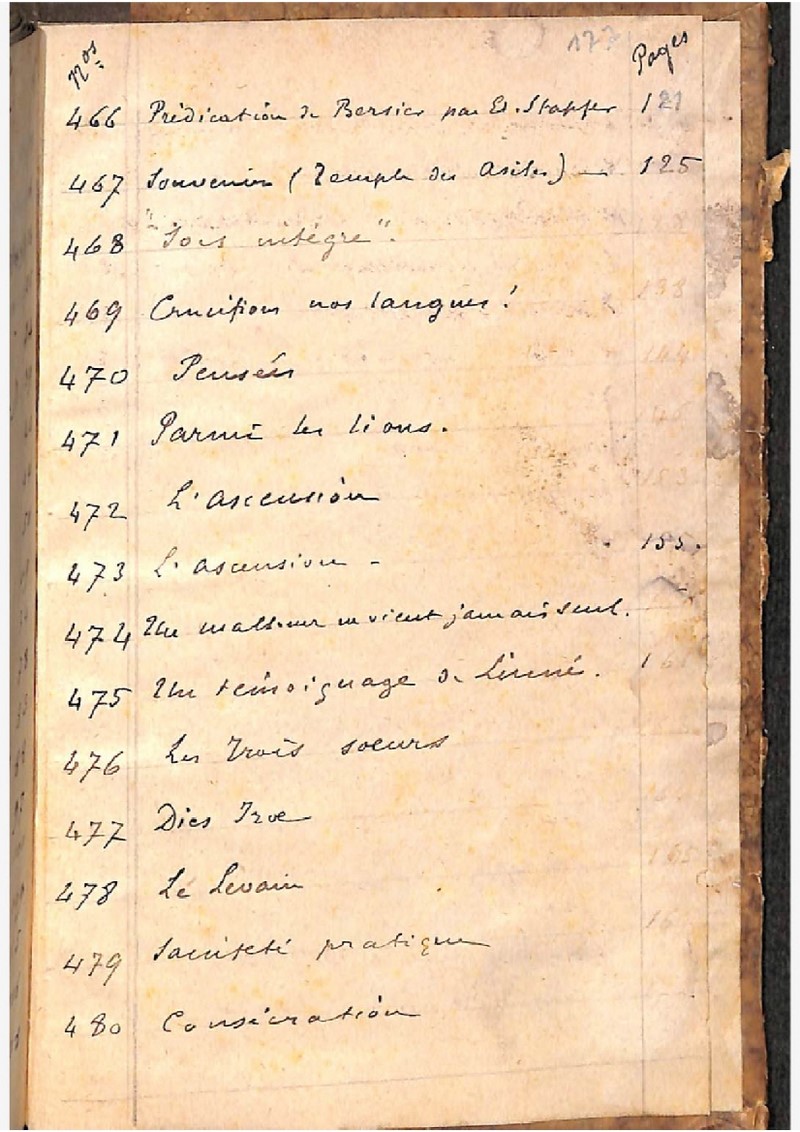 177
Nos Pages
466 Prédication de Bersier par Ed. Stapfer 121
467 Souvenir (Temple des Asiles) — 125
468 "Sois intègre".
469 Crucifions nos langues! 138
470 Pensées 144
471 Parmi les lions.
472 L'ascension 153
473 L'ascension - 155.
474 Un malheur ne vient jamais seul.
475 Un témoignage de Linné.
476 Les Trois soeurs
477 Dies Irae
478 Le Levain 165
479 Sainteté pratique
480 Consécration